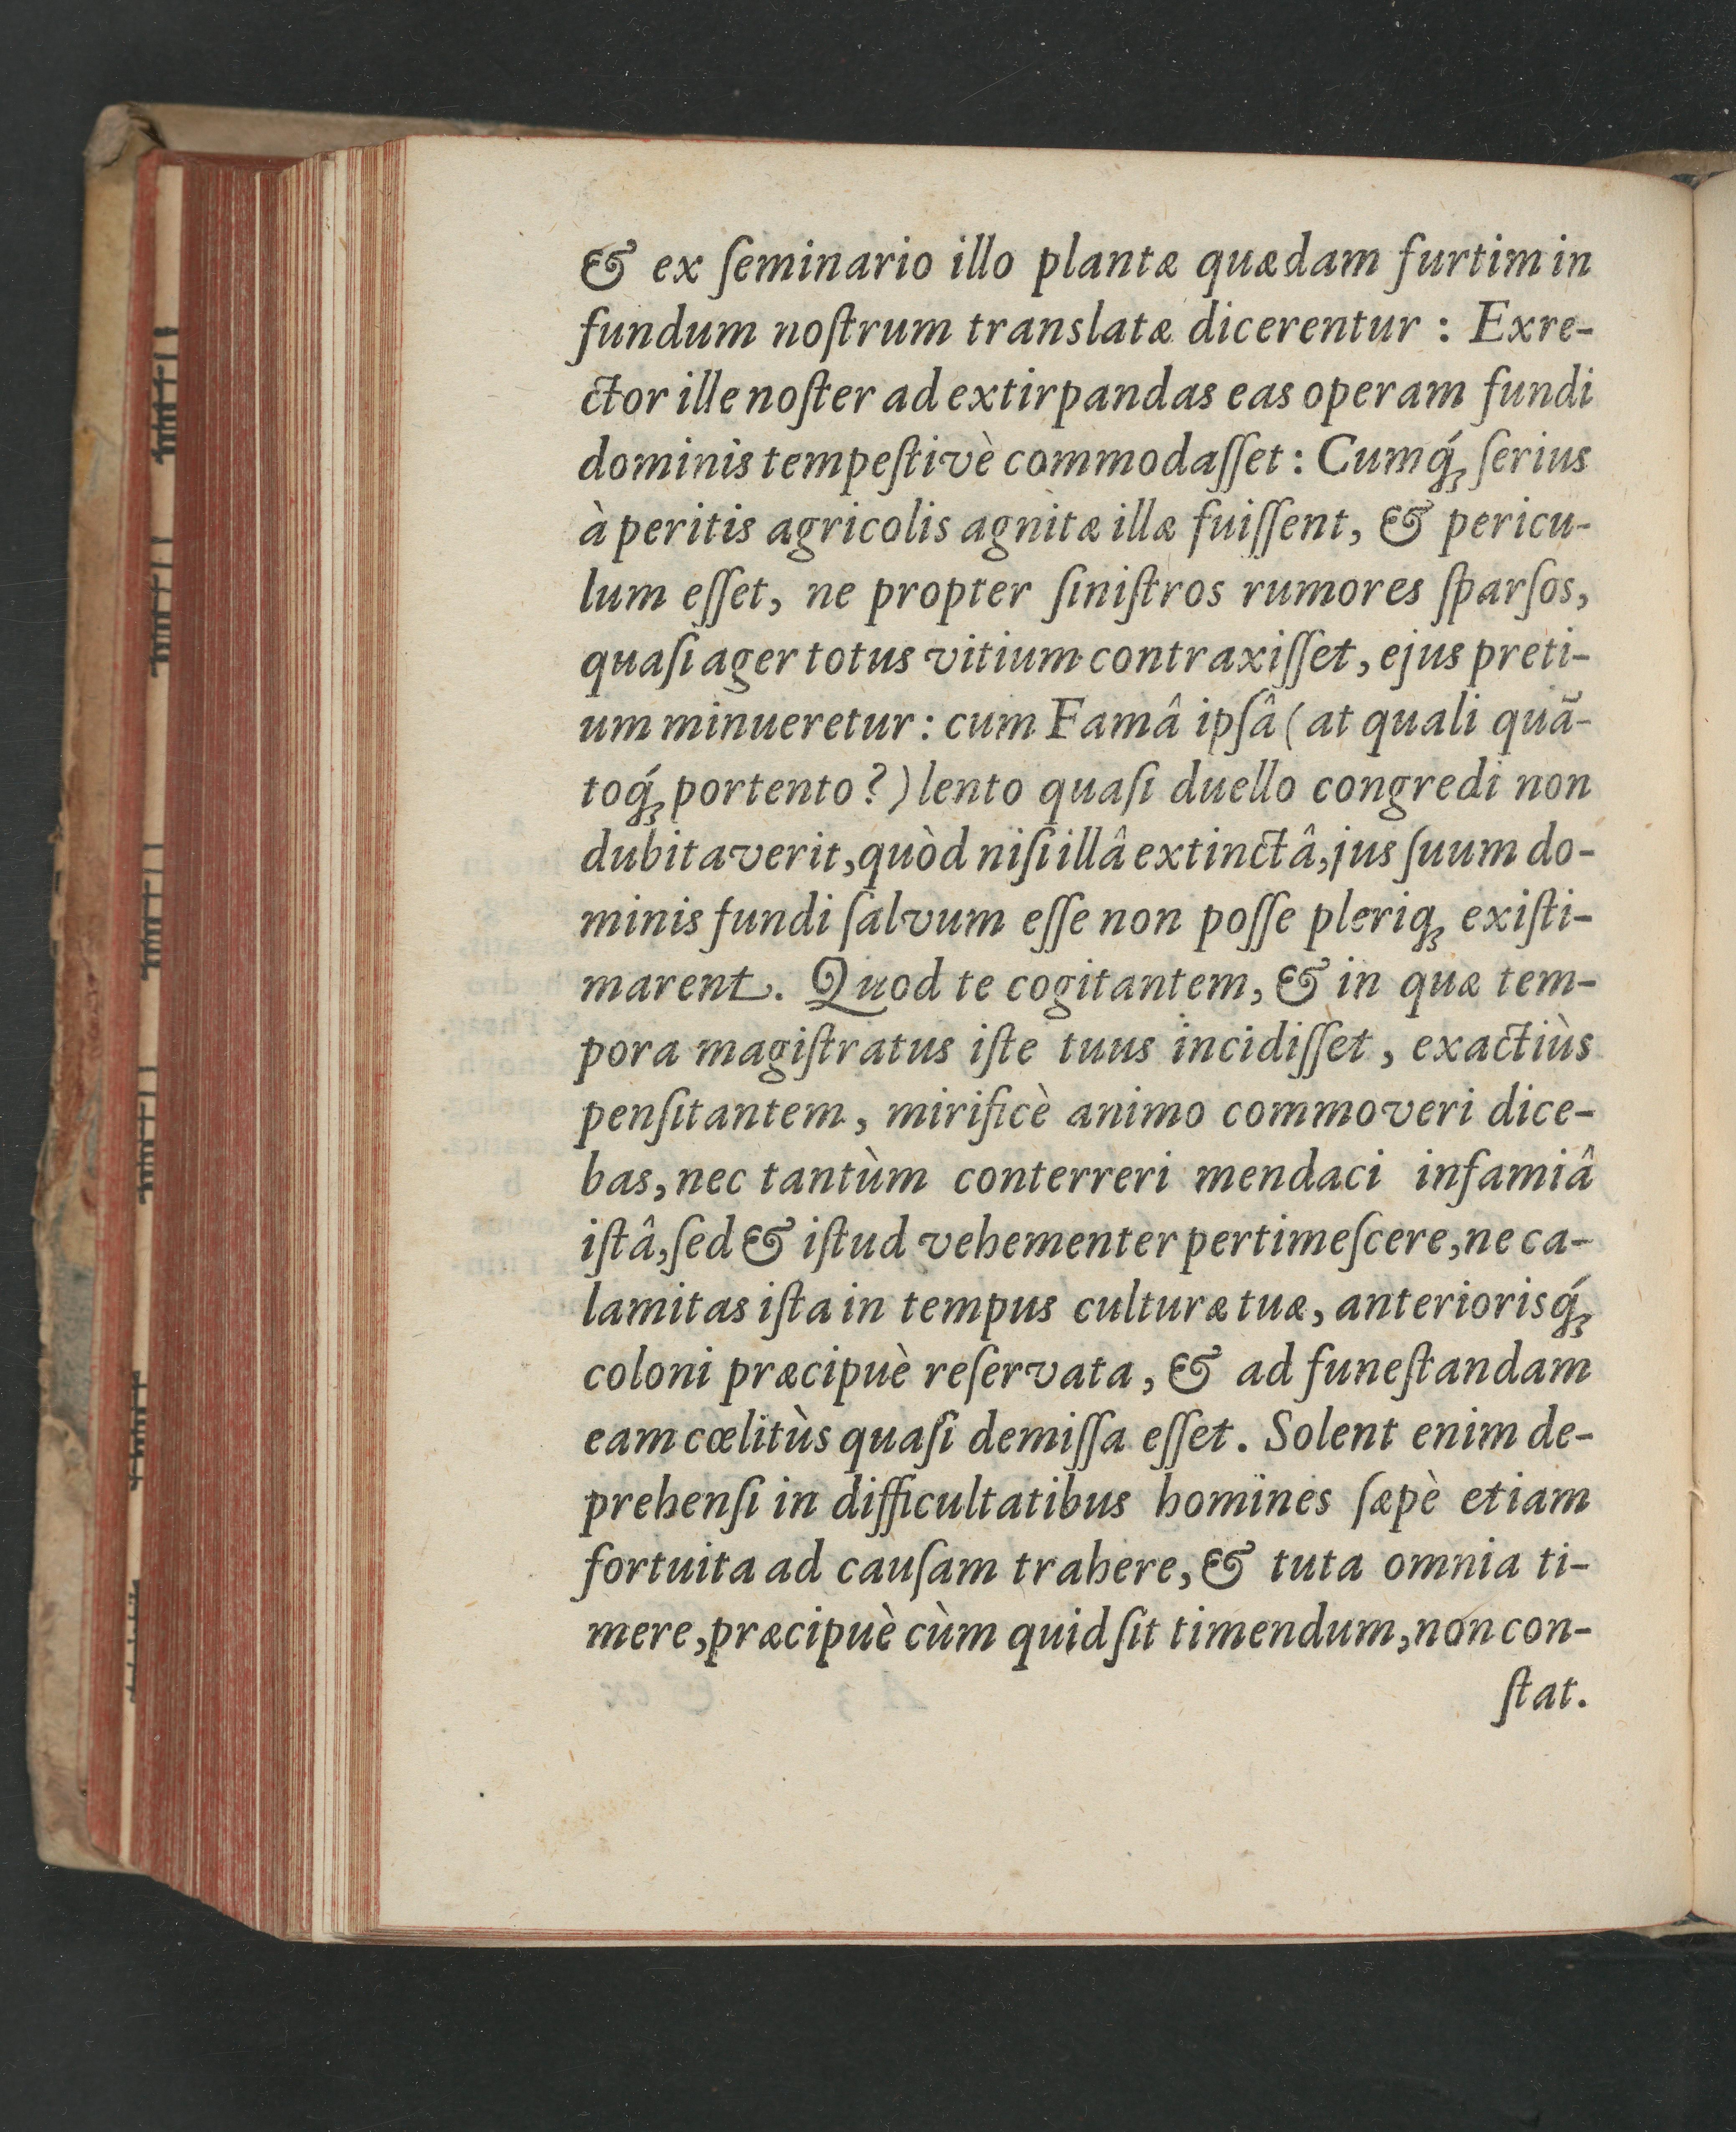 & ex ſeminario illo plantæ quædam furtim in
fundum noſtrum translatæ dicerentur : Exre-
ctor ille noſter ad extirpandas eas operam fundi
dominis tempeſtivè commodaſſet : Cumq́ꝫ ſerius
à peritis agricolis agnitæ illæ fuiſſent, & pericu-
lum eſſet, ne propter ſiniſtros rumores ſparſos,
quaſi ager totus vitium contraxiſſet, ejus preti-
um minueretur : cum Famâ ipſâ ( at quali quã-
toq́ꝫ portento ? ) lento quaſi duello congredi non
dubitaverit, quòd niſi illâ extinctâ, jus ſuum do-
minis fundi ſalvum eſſe non poſſe pleriqꝫ exiſti-
marent. Quod te cogitantem, & in quæ tem-
pora magiſtratus iſte tuus incidiſſet, exactiùs
penſitantem, mirificè animo commoveri dice-
bas, nec tantùm conterreri mendaci infamiâ
iſtâ, ſed & iſtud vehementer pertimeſcere, ne ca-
lamitas iſta in tempus culturæ tuæ, anteriorisq́ꝫ
coloni præcipuè reſervata, & ad funeſtandam
eam cœlitùs quaſi demiſſa eſſet. Solent enim de-
prehenſi in difficultatibus homines ſæpè etiam
fortuita ad cauſam trahere, & tuta omnia ti-
mere, præcipuè cùm quid ſit timendum, non con-
ſtat.